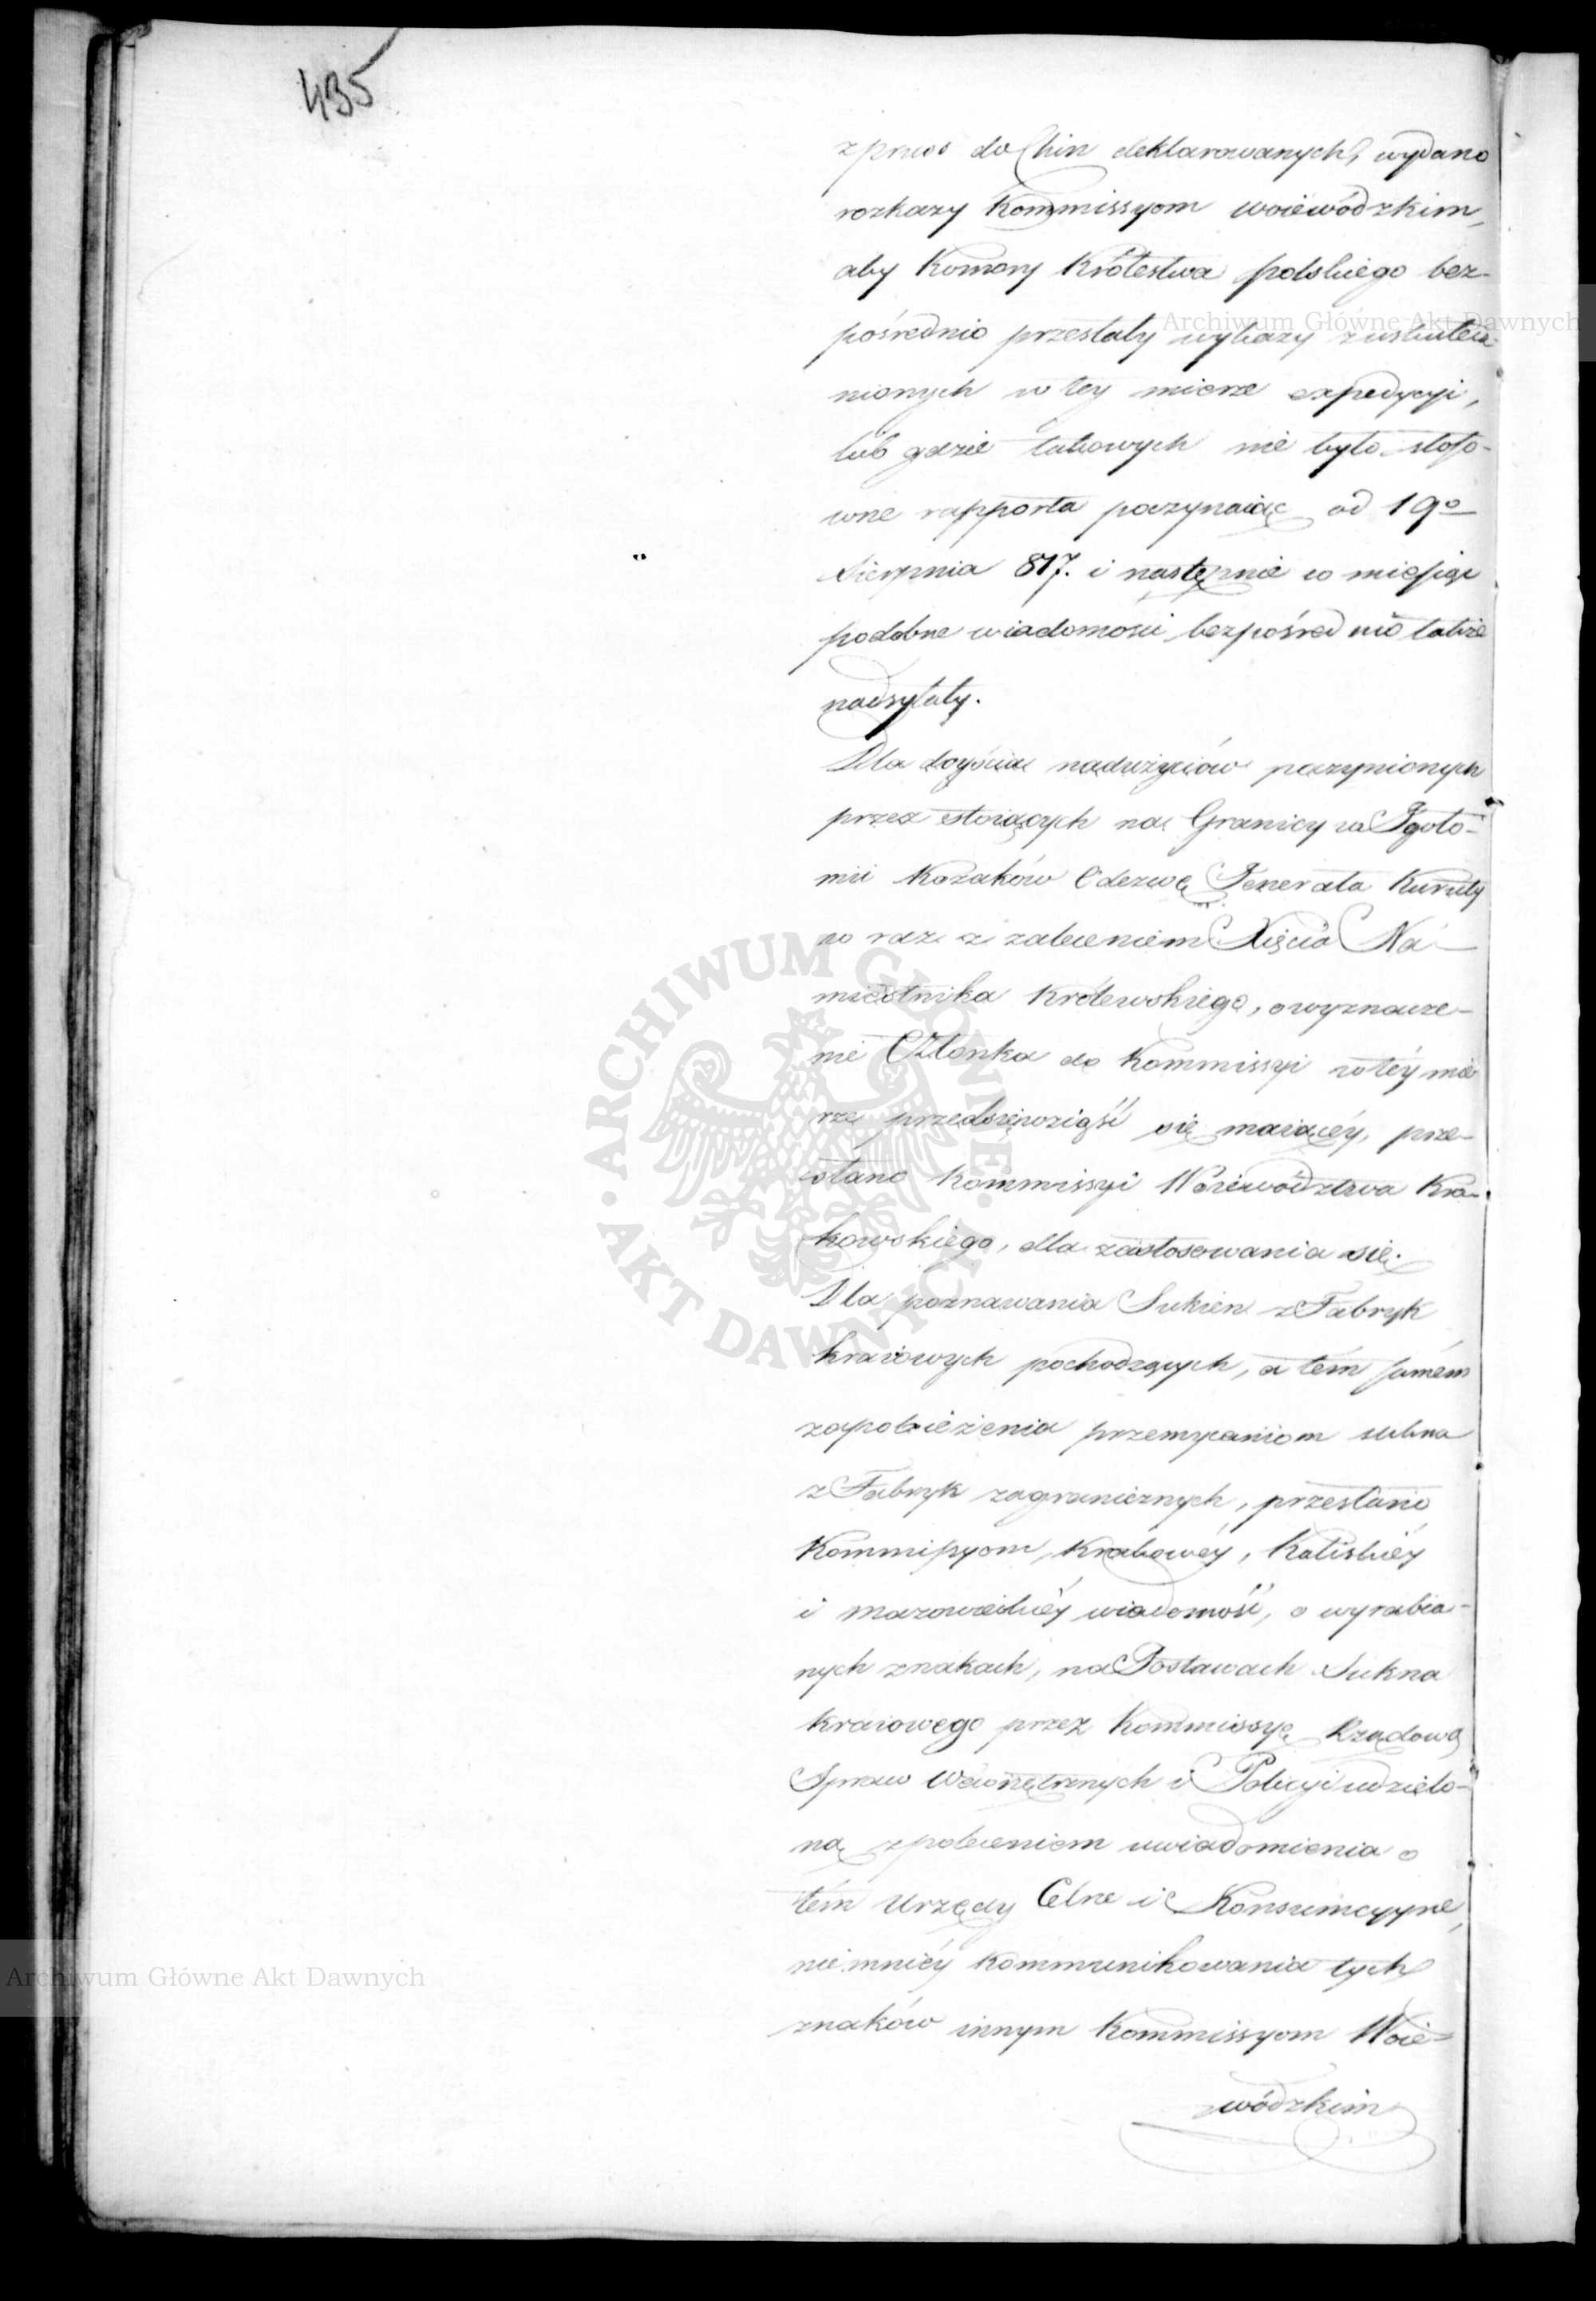 435
z prus do Chin deklarowanych, wydano
rozkazy Kommissyom woiewódzkim,
aby Komory Królestwa polskiego bez-
pośrednio przesłały wykazy zuskutecz-
nionych w tey mierze expedycyi,
lub gdzie takowych nie było stoso-
wne rapporta poczynaiąc od 19º
Sierpnia 817. i następnie co miesiąc
podobne wiadomości bezpośrednio także
nadsyłały.
Dla doyścia nadużyciów poczynionych
przez stoiących na Granicy w Igoło-
mii Kozaków Odezwę Jenerała Kuruty
w raz z zaleceniem Xięcia Na-
miestnika Królewskiego, o wyznacze-
nie Członka do Kommissyi w téy mie
rze przedsięwziąść się maiącéy, prze-
słano Kommissyi Woiewództwa Kra-
kowskiego, dla zastosowania się.
Dla poznawania Sukien z Fabryk
kraiowych pochodzących, a tém samém
zapobieżenia przemycaniom sukna
z Fabryk zagranicznych, przesłano
Kommissyom, Krakowéy, Kaliskiéy
i mazowieckiéy wiadomość, o wyrabia-
nych znakach, na Postawach Sukna
kraiowego przez Kommissyę Rządową
Spraw Wewnętrznych i Policyi udzielo-
ną z poleceniem uwiadomienia o
tém Urzędy Celne i Konsumcyyne,
niemniéy kommunikowania tych
znaków innym Kommissyom Woie-
wódzkim
Archiwum Główne Akt Dawnych
ARCHIWUM GŁÓWNE AKT DAWNYCH
Archiwum Główne Akt Dawnych